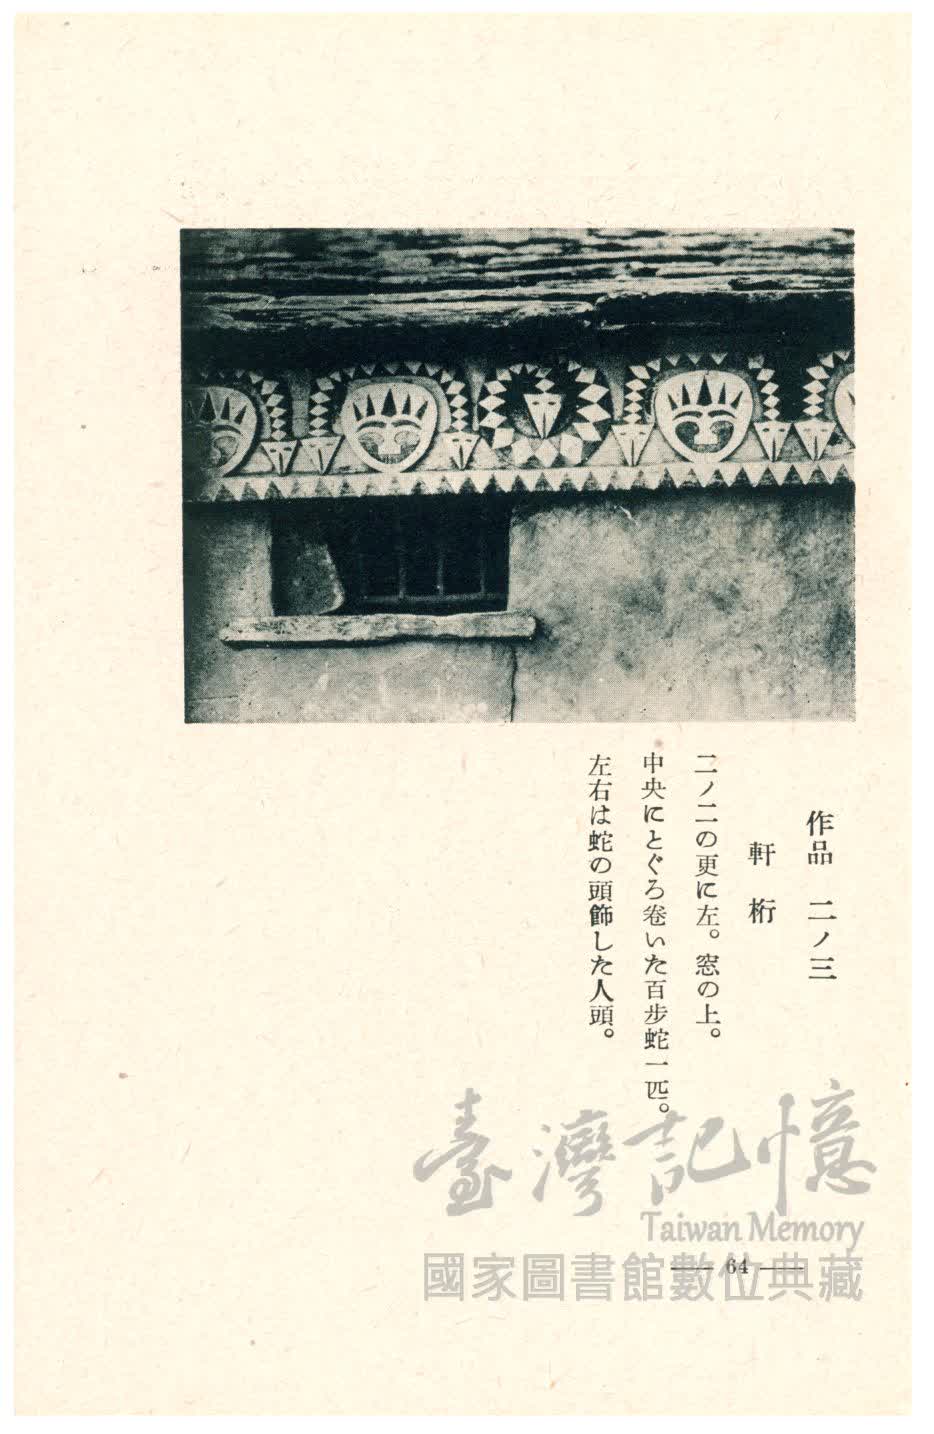 作品 二ノ三
軒桁
二ノ二の更に左。窓の上。
中央にとぐろ卷いた百步蛇一匹。
左右は蛇の頭飾した人頭。
臺灣記憶
Taiwan Memory
國家圖書館數位典藏
— 64 —